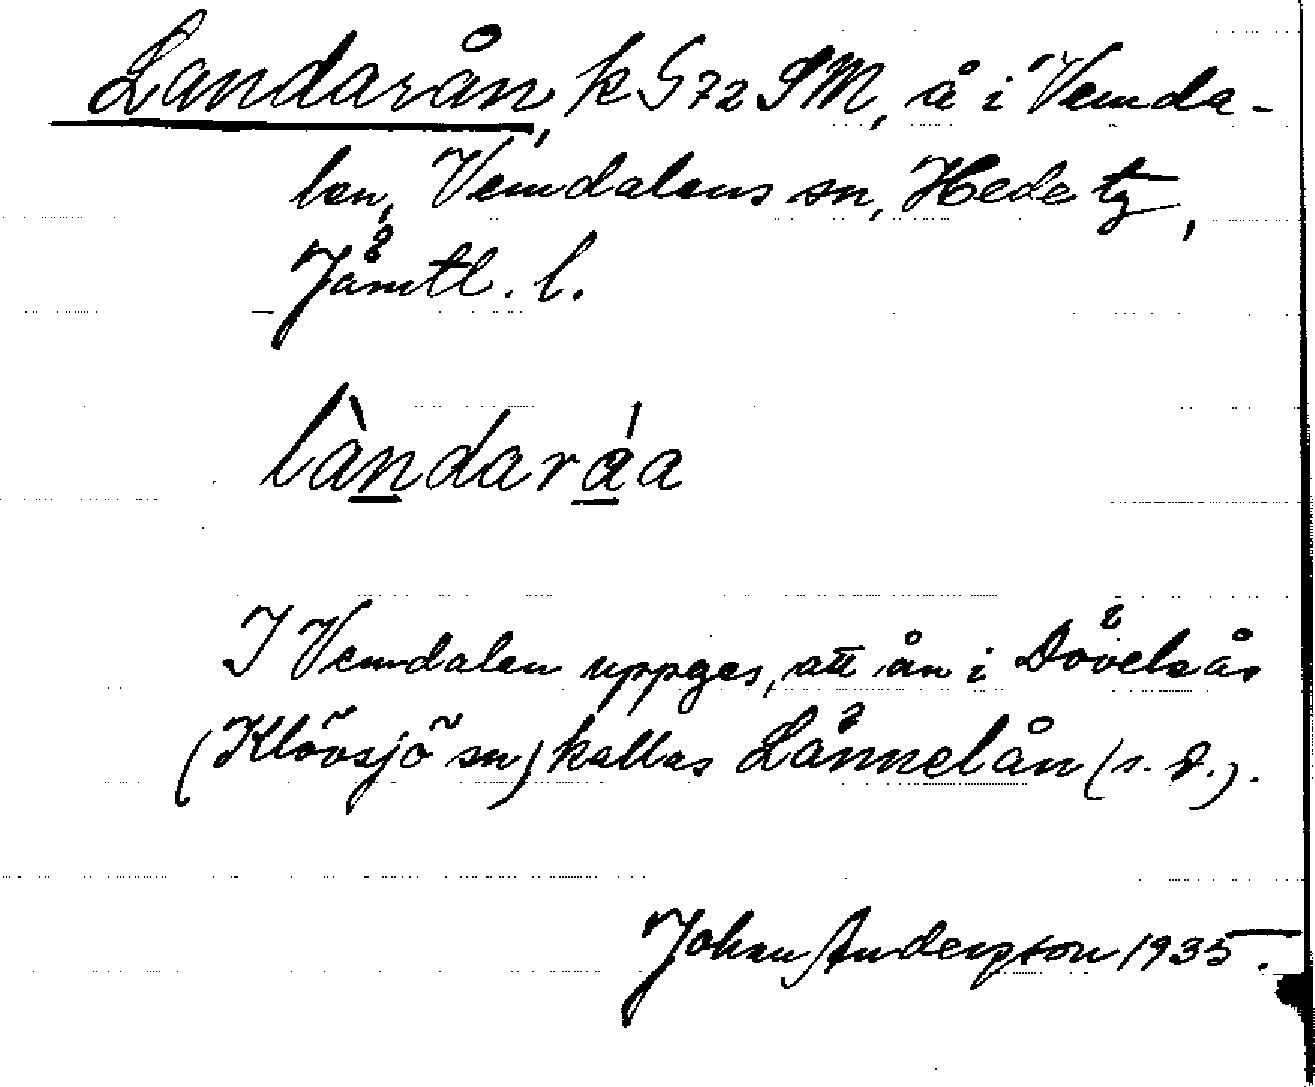 Landarån, k G 72 SM, å i Vemda-
len, Vemdalens sn, Hede tg,
Jämtl. l.
làndaráa
I Vemdalen uppges, att ån i Dövelsås
(Klövsjö sn) kallas Lännelån (s. d.).
Johan Anderson 1935.